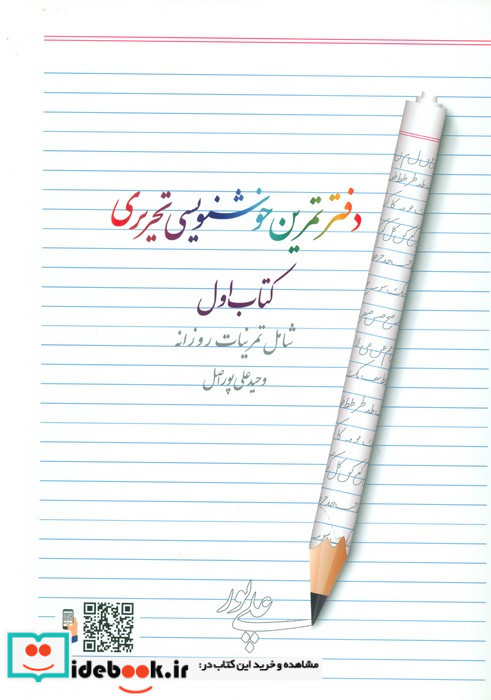 دفتر تمرین خوشنویسی تحریری
کتاب اول
شامل تمرینات روزانه
وحید علی پور اصل
علی پور
مشاهده و خرید این کتاب در:
idebook.ir